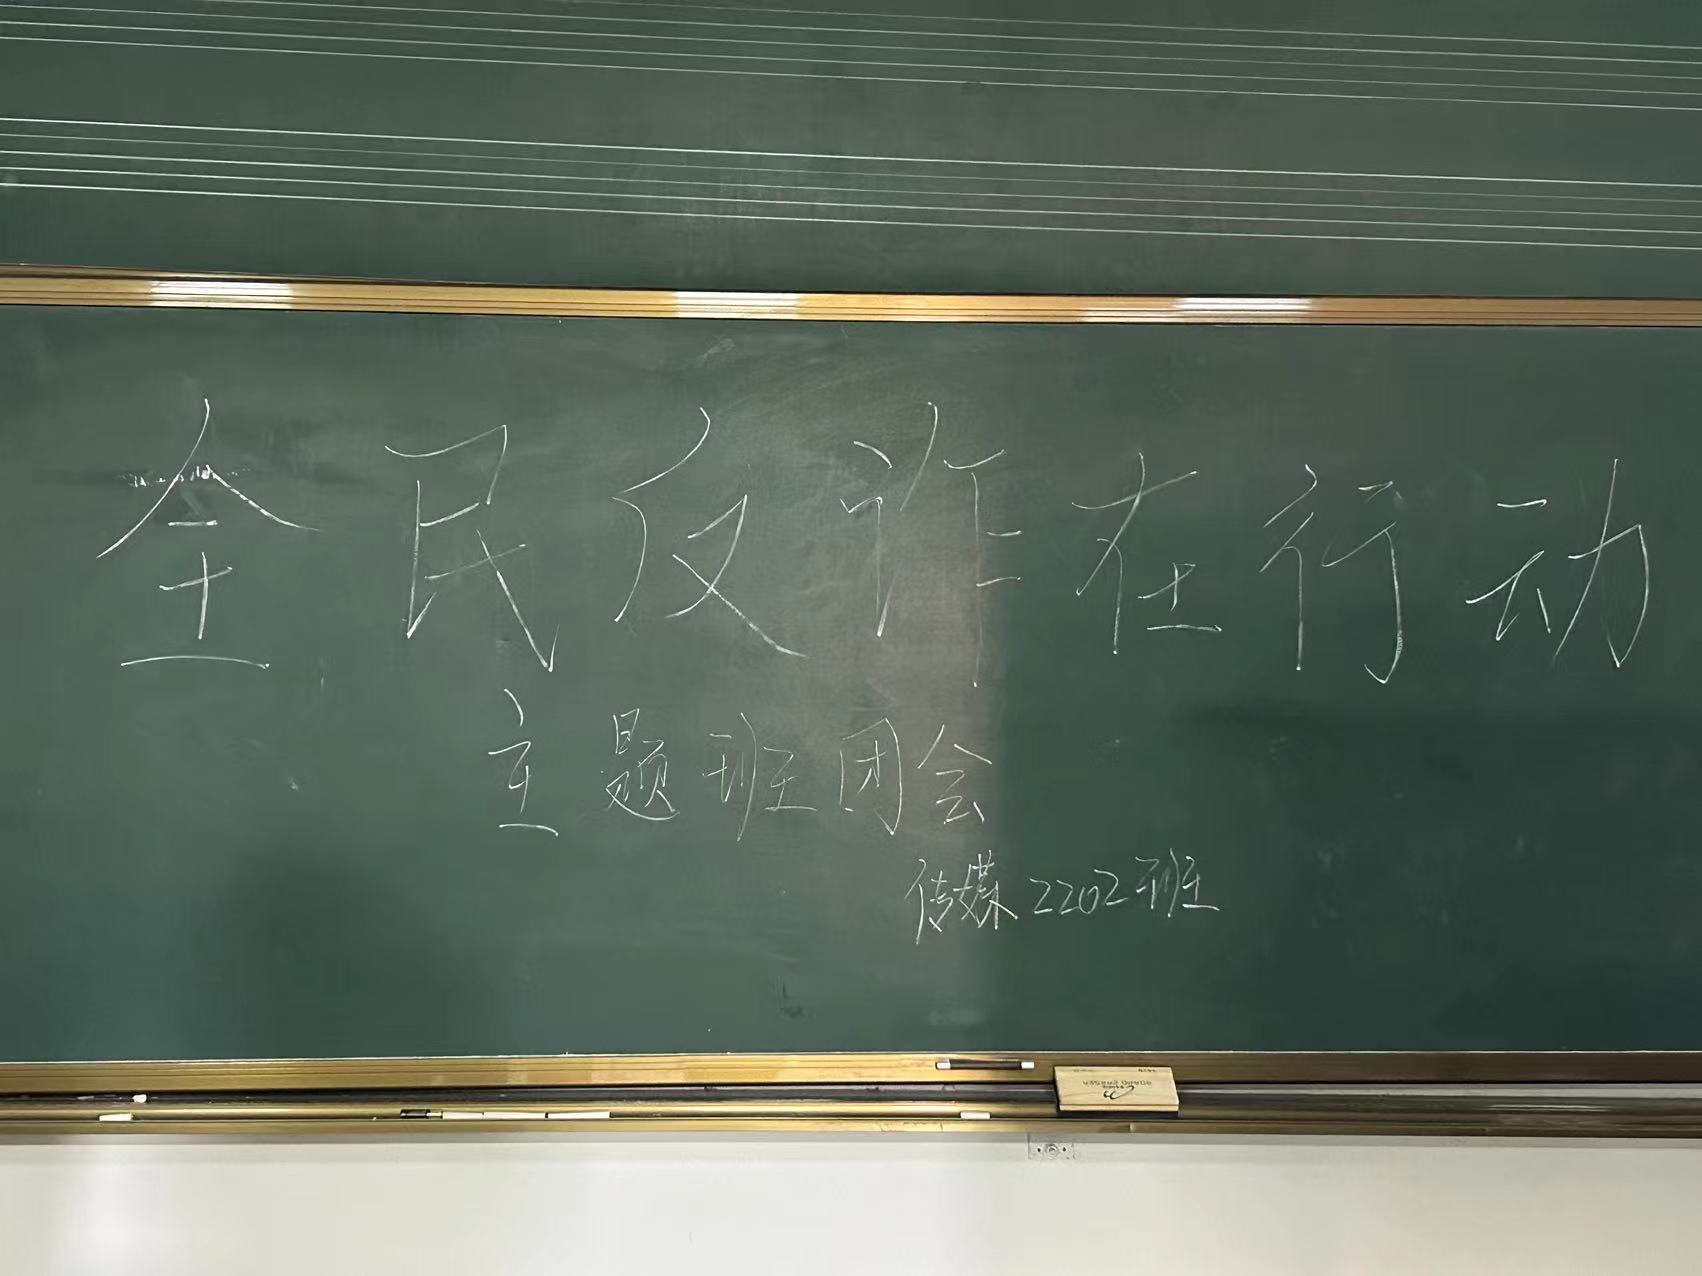 全民反诈在行动
主题班团会
传媒2202班
BOARD ERASER